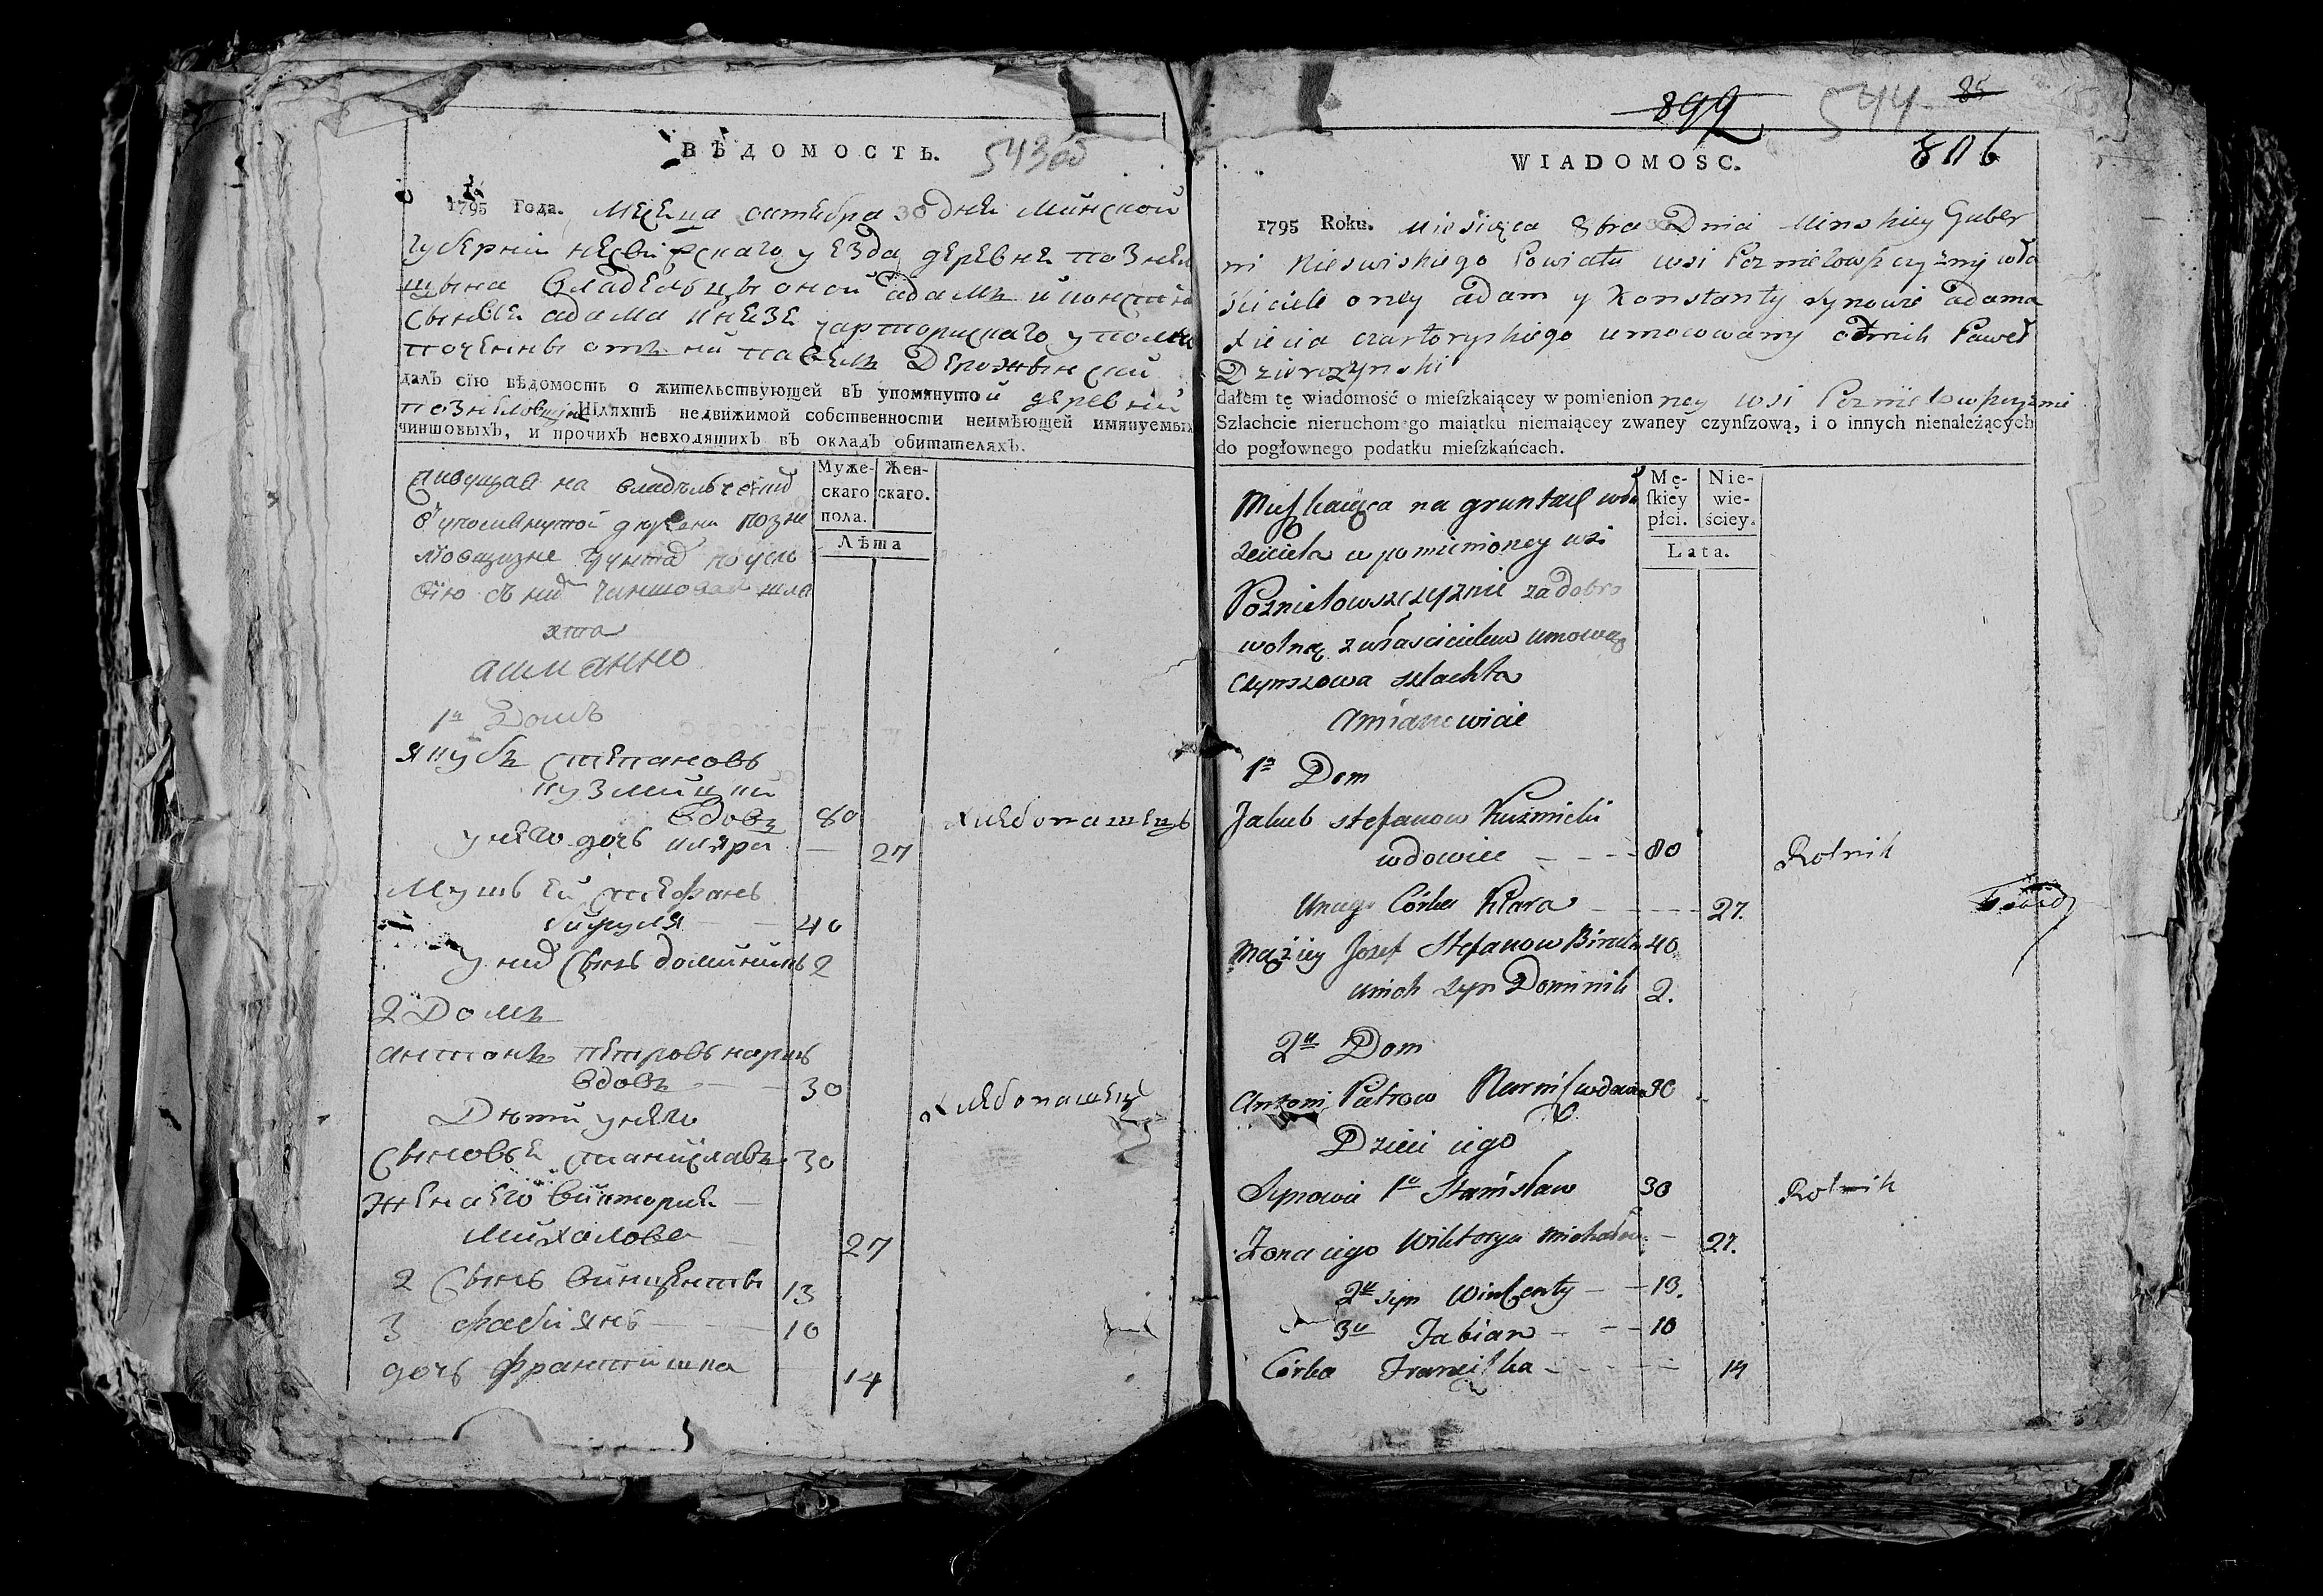 ВѢДОМОСТЬ. 543об
1795 Года. месеца октебра 30 дне минской
губернии несвижскаго уезда деревне познел
щына владельцы оной адамъ и констан
сынове адама кнезе чарторискаго уполно
моченны отъ ни павелъ Держынский
далъ сію вѣдомость о жительствующей въ упомянутой деревни
познеловщине Шляхтѣ недвижимой собственности неимѣющей имянуемых
чиншовыхъ, и прочихъ невходящихъ въ окладъ обитателяхъ.
Муже- Жен-
скаго скаго.
пола.
Лѣта
живущая на владѣльческих
в упомянутой деревни позне
ловщизне грунтах по усло
вію съ ними чиншовая шля
хта
1й Домъ
якубъ степановъ
кузмицки
вдовъ 80 хлебопашецъ
у него дочь кляра — 27
Мужъ ей стефанъ
40
у них сынъ доминикъ 2
2 Домъ
антонъ петровъ
вдовъ — 30 хлебопашец
Дети у него
сыновье станиславъ 30
жена его викторие —
михалова 27
2 сынъ винценты 13
3 фабиянъ — 10
дочь франтишка 14
899 544 85
WIADOMOSC. 806
1795 Roku. Miesięca 8bra 30 Dnia Minskiey Guber
ni Nieswiskiego Powiatu wsi Poznielowszczyzny wła
sciciele oney adam y Konstanty synowie adama
xiecia czartoryskiego umocowany od nich Paweł
Dzierozynski
dałem tę wiadomość o mieſzkaiącey w pomienionney wsi Poznielowszczyznie
Szlachcie nieruchomego maiątku niemaiącey zwaney czynſzową, i o innych nienależących
do pogłownego podatku mieſzkańcach.
Mę- Nie-
ſkiey wie-
płci. ściey.
Lata.
Mieszkaiąca na gruntach wła
sciciela w pomienioney wsi
Poznielowszczyznie za dobro
wolną z właścicielem umową
czynszowa szlachta
1a Dom
Jakub stefanow Kuźmicki
wdowiec — 80 Rolnik
Unego Córka Klara — 27.
Mąż iey Jozef Stefanow 40
unich syn Dominik 2.
2u Dom
Antoni Petrow 80
Dzieci iego
Synowie 1u Stanisław 30 Rolnik
Żona iego Wiktorya 27.
2u syn Wincenty — 13.
3u Fabian — 10
Córka Franciszka — 14